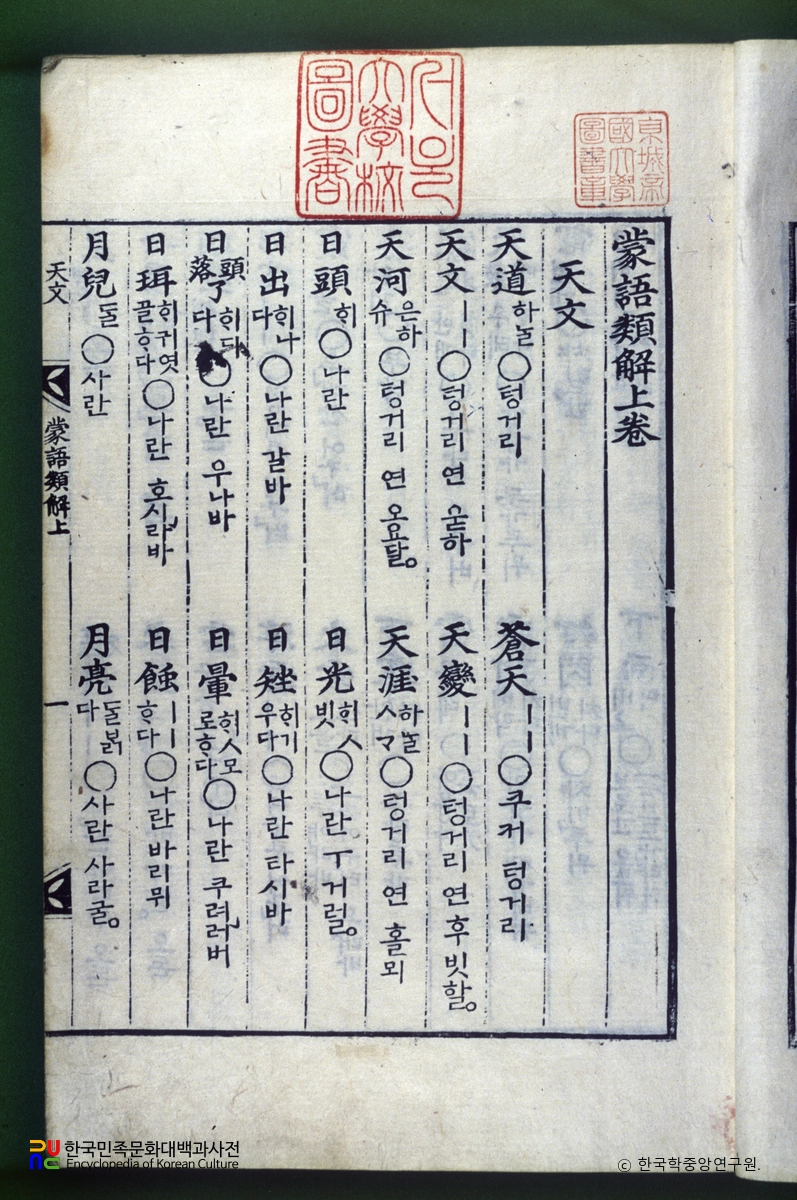 서울大學校圖書
京城帝國大學圖書章
蒙語類解上卷
天文
天道 하ᄂᆞᆯ ○텅거리 蒼天 丨丨 ○쿠커 텅거리
天文 丨丨 ○텅거리 연 욷하 天變 丨丨 ○텅거리 연 후빗할。
天河 은하슈 ○텅거리 연 오요달。 天涯 하ᄂᆞᆯㅅᄀᆞ ○텅거리 연 홀뫼
日頭 ᄒᆡ ○나란 日光 ᄒᆡㅅ빗 ○나란 ㅜ거럴。
日出 ᄒᆡ나다 ○나란 갈바 日矬 ᄒᆡ기우다 ○나란 타시바
日頭落了 ᄒᆡ디다 ○나란 우나바 日暈 ᄒᆡㅅ모로ᄒᆞ다 ○나란 쿠려러버
日珥 ᄒᆡ귀엿골ᄒᆞ다 ○나란 호시라바 日蝕 丨丨ᄒᆞ다 ○나란 바리뮈
月兒 ᄃᆞᆯ ○사란 月亮 ᄃᆞᆯᄇᆞᆰ다 ○사란 사라굴。
天文 蒙語類解上 一
한국민족문화대백과사전
Encyclopedia of Korean Culture
© 한국학중앙연구원.